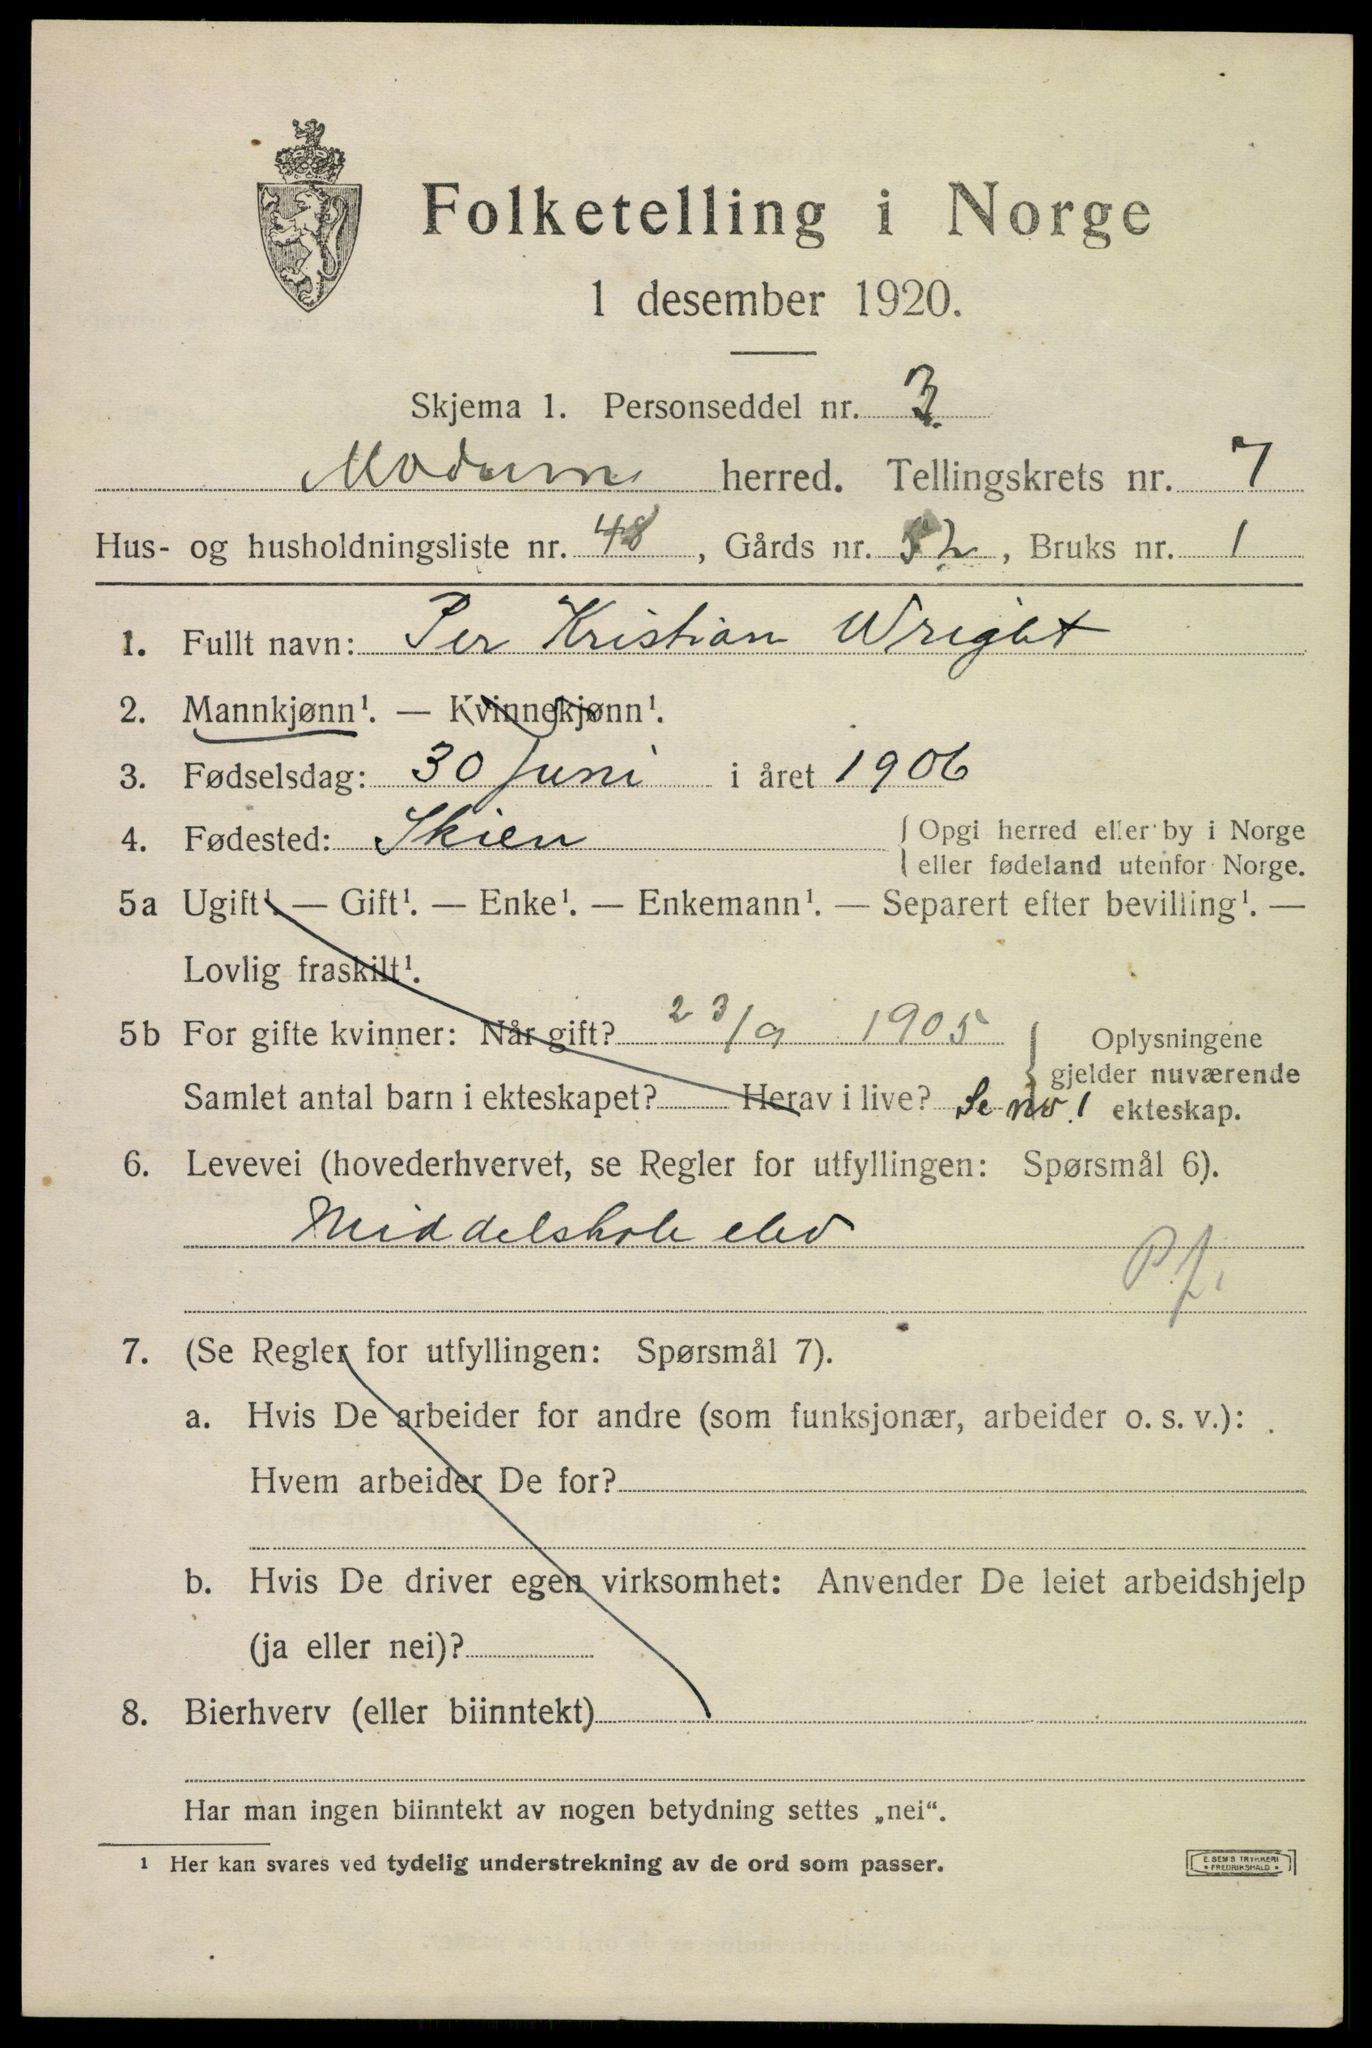 Folketelling i Norge
1 desember 1920.
Skjema 1. Personseddel nr. 3
Modum herred. Tellingskrets nr. 7
Hus- og husholdningsliste nr. 48, Gårds nr. 52, Bruks nr. 1
1. Fullt navn: Per Kristian Wright
2. Mannkjønn¹. — Kvinnekjønn¹.
3. Fødselsdag: 30 Juni i året 1906
4. Fødested: Skien { Opgi herred eller by i Norge
eller fødeland utenfor Norge.
5a Ugift¹. — Gift¹. — Enke¹. — Enkemann¹. — Separert efter bevilling¹. —
Lovlig fraskilt¹.
5b For gifte kvinner: Når gift? 23/9 1905 } Oplysningene
gjelder nuværende
Samlet antal barn i ekteskapet? Herav i live? Se no 1 ekteskap.
6. Levevei (hovederhvervet, se Regler for utfyllingen: Spørsmål 6).
Middelskole elev
Pf.
7. (Se Regler for utfyllingen: Spørsmål 7).
a. Hvis De arbeider for andre (som funksjonær, arbeider o. s. v.):
Hvem arbeider De for?
b. Hvis De driver egen virksomhet: Anvender De leiet arbeidshjelp
(ja eller nei)?
8. Bierhverv (eller biinntekt)
Har man ingen biinntekt av nogen betydning settes „nei“.
¹ Her kan svares ved tydelig understrekning av de ord som passer.
E. SEM'S TRYKKERI
• FREDRIKSHALD •